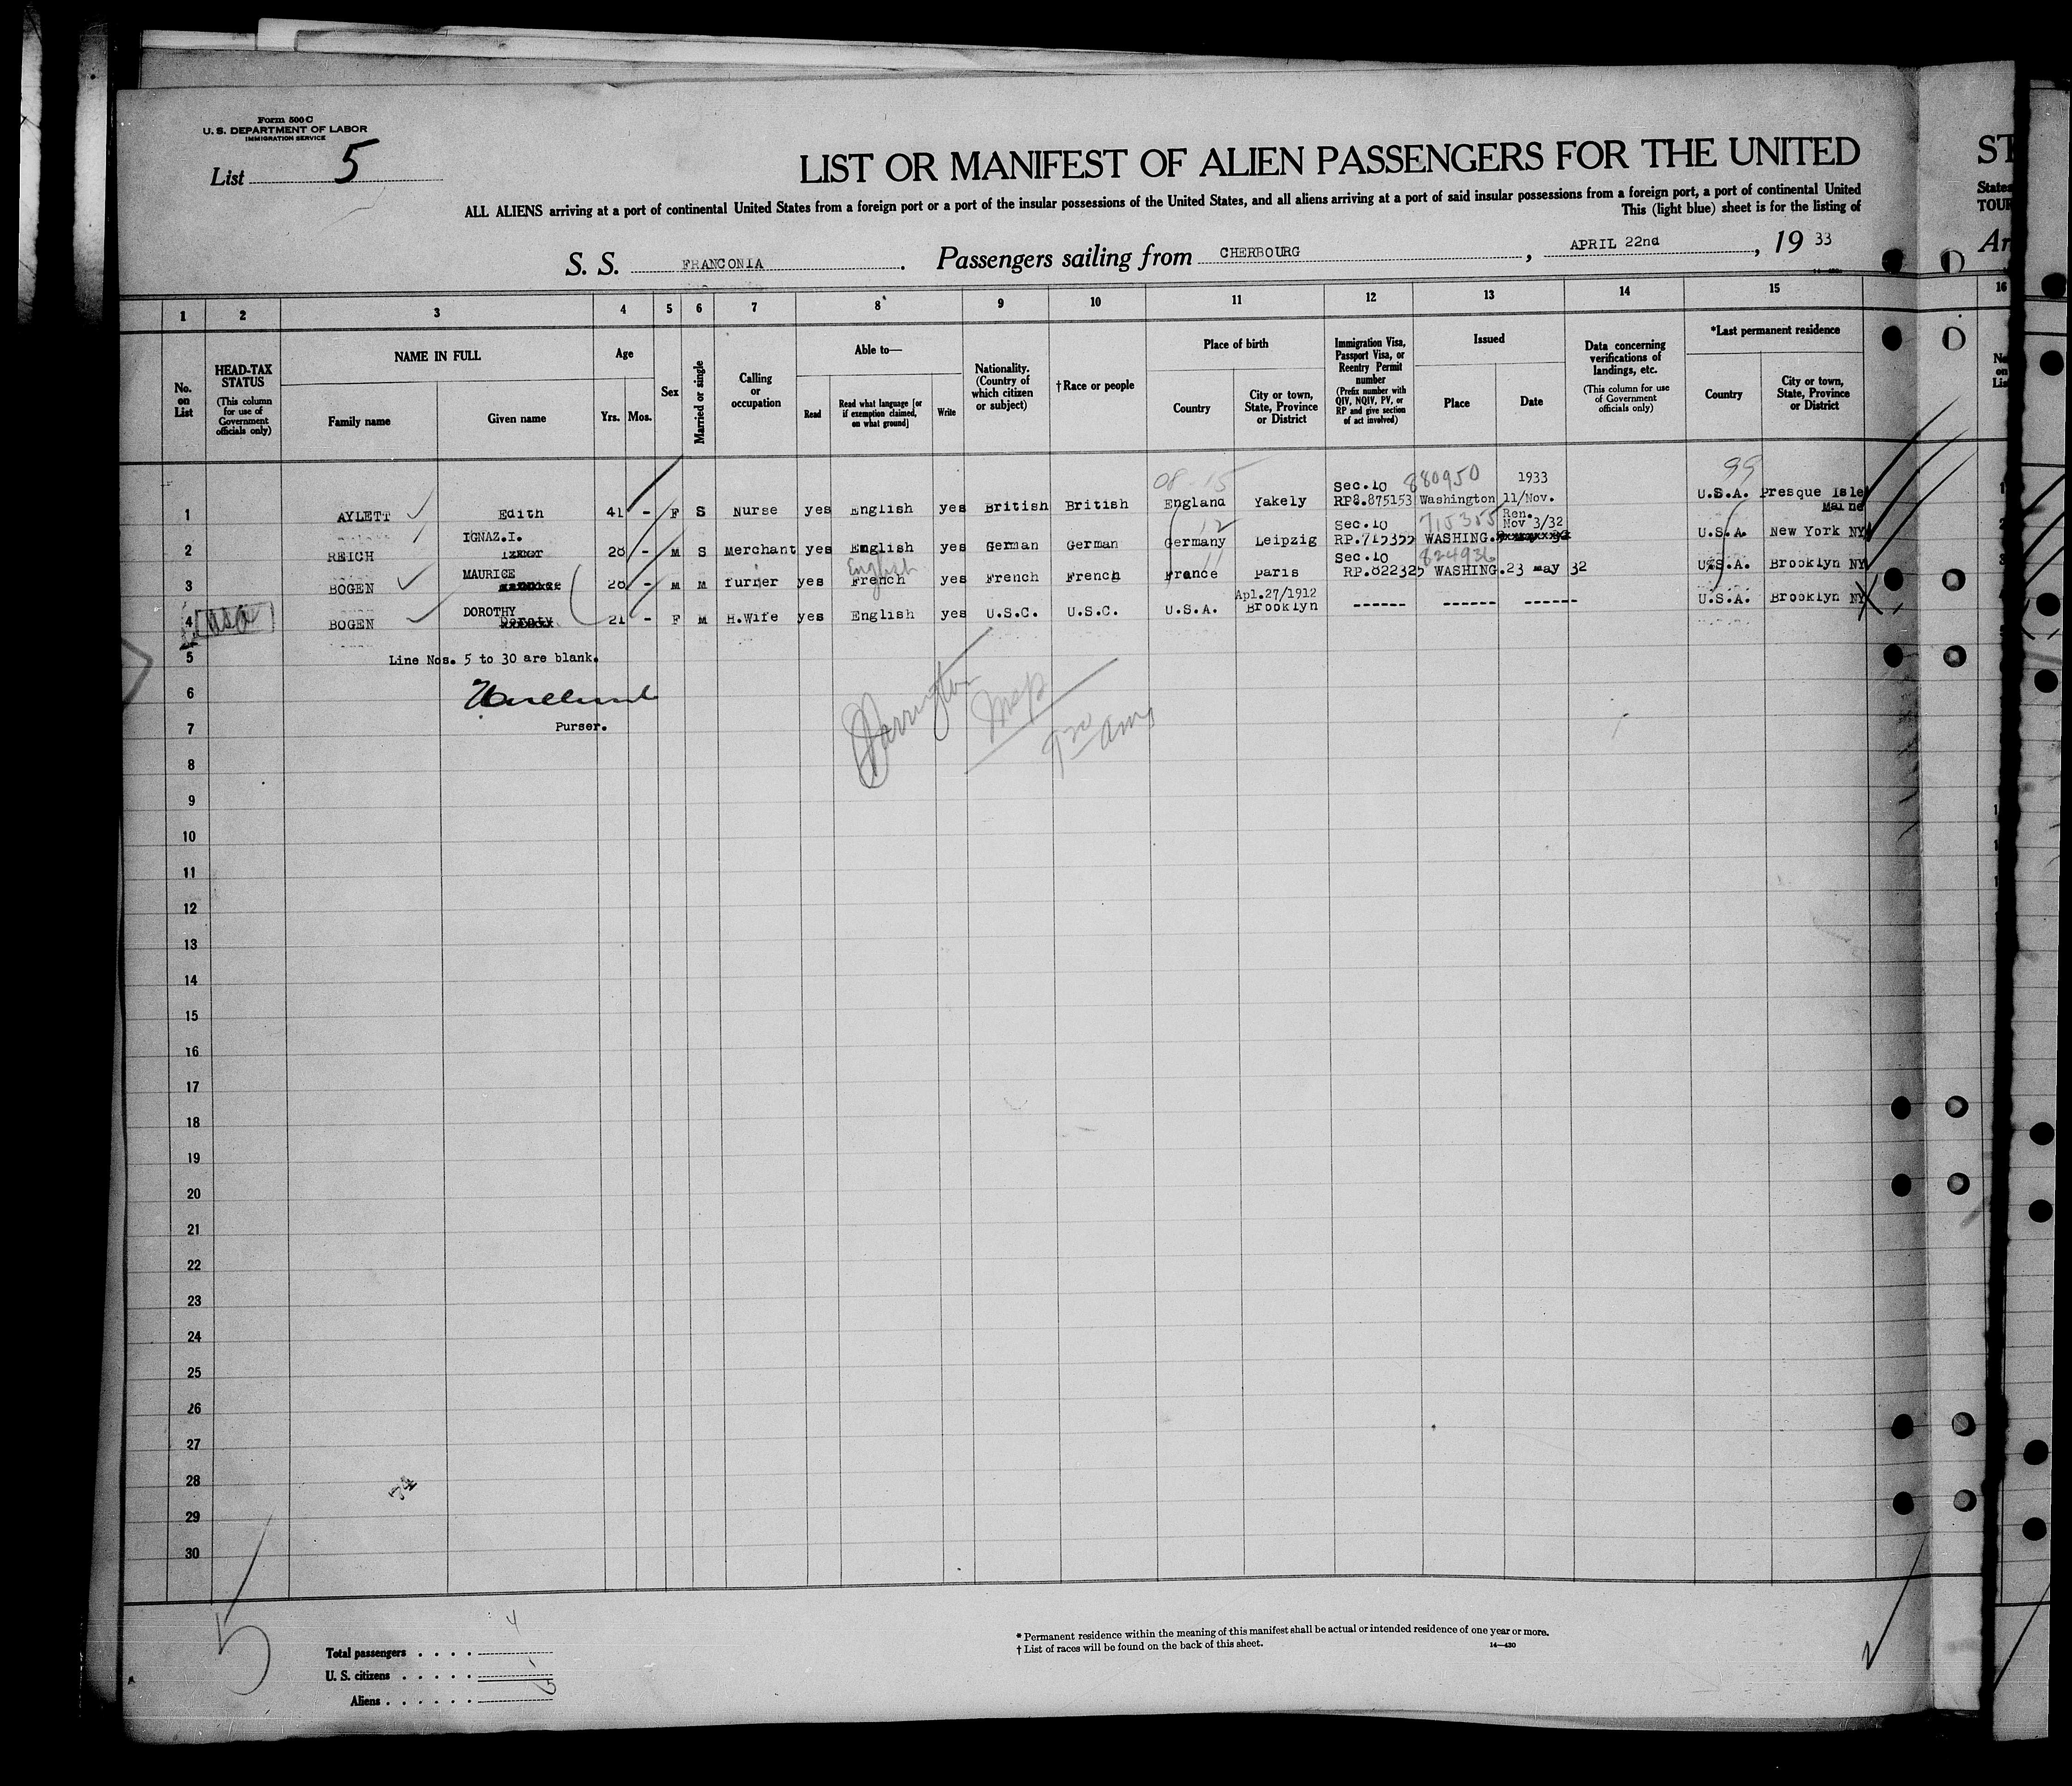 Form 500 C
U. S. DEPARTMENT OF LABOR
IMMIGRATION SERVICE
List 5
LIST OR MANIFEST OF ALIEN PASSENGERS FOR THE UNITED
ST
ALL ALIENS arriving at a port of continental United States from a foreign port or a port of the insular possessions of the United States, and all aliens arriving at a port of said insular possessions from a foreign port, a port of continental United
States
This (light blue) sheet is for the listing of
TOUR
S. S. FRANCONIA. Passengers sailing from CHERBOURG, APRIL 22nd, 19 33
Ar
1 2 3 4 5 6 7 8 9 10 11 12 13 14 15 16
No. on List
HEAD-TAX STATUS
(This column for use of Government officials only)
NAME IN FULL
Family name
Given name
Age
Yrs. Mos.
Sex
Married or single
Calling or occupation
Able to—
Read
Read what language [or if exemption claimed, on what ground]
Write
Nationality. (Country of which citizen or subject)
†Race or people
Place of birth
Country
City or town, State, Province or District
Immigration Visa, Passport Visa, or Reentry Permit number
(Prefix number with QIV, NQIV, PV, or RP and give section of act involved)
Issued
Place
Date
Data concerning verifications of landings, etc.
(This column for use of Government officials only)
*Last permanent residence
Country
City or town, State, Province or District
08-15 Sec.10 880950 1933 99
1 AYLETT Edith 41 - F S Nurse yes English yes British British England Yakely RP8.875153 Washington 11/Nov. U.S.A. Presque Isle Maine
IGNAZ.I. 12 Sec.10 715355 Ren. Nov 3/32
2 REICH 28 - M S Merchant yes English yes German German Germany Leipzig RP.715355 WASHING. U.S.A. New York NY
MAURICE English 11 Sec.10 824936
3 BOGEN 28 - M M furrier yes French yes French French France Paris RP.822325 WASHING. 23 May 32 U.S.A. Brooklyn NY
DOROTHY Apl.27/1912
4 USC BOGEN 21 - F M H.Wife yes English yes U.S.C. U.S.C. U.S.A. Brooklyn ------ ------ ------ U.S.A. Brooklyn NY
5 Line Nos. 5 to 30 are blank.
6
7 Purser.
8
9
10
11
12
13
14
15
16
17
18
19
20
21
22
23
24
25
26
27
28
29
30
5
Total passengers . . . . 4
U. S. citizens . . . . . 1
Aliens . . . . . . 3
* Permanent residence within the meaning of this manifest shall be actual or intended residence of one year or more.
† List of races will be found on the back of this sheet.
14—430